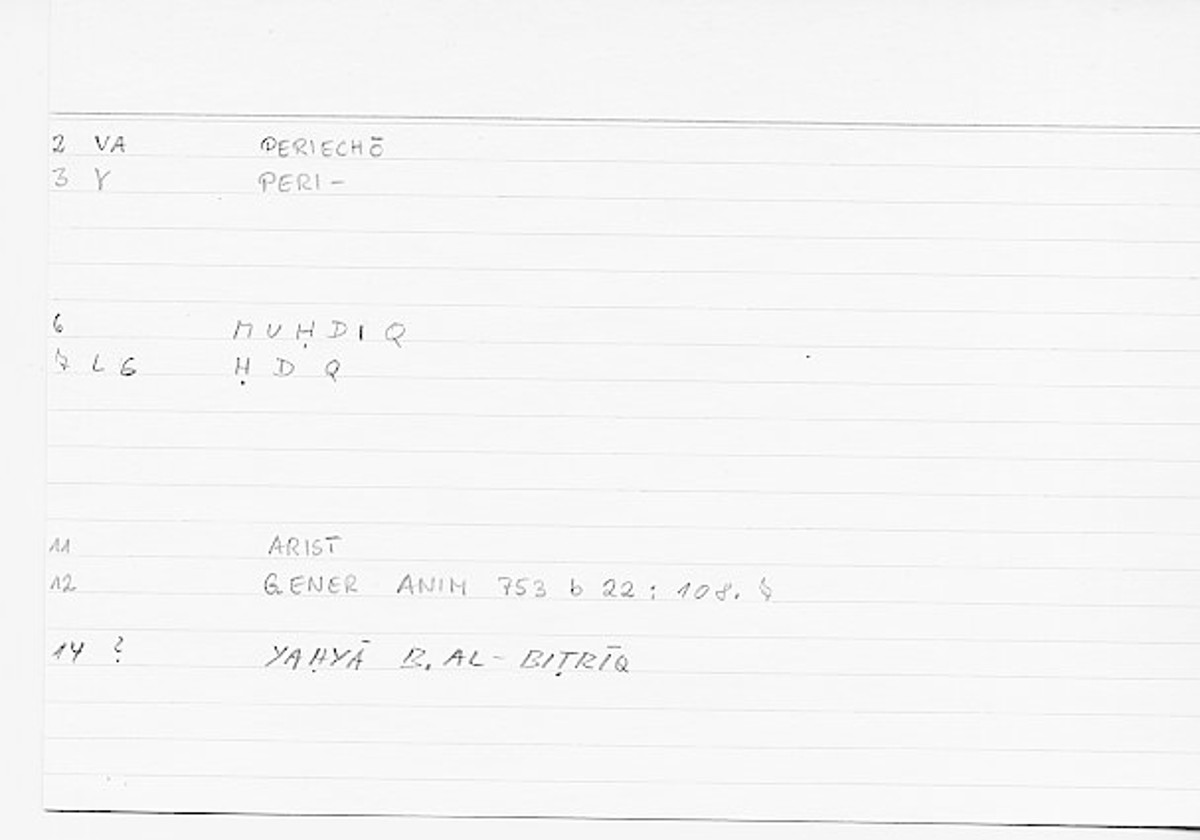 2 VA PERIECHŌ
3 Y PERI-
6 MUḤDIQ
7 L6 ḤDQ
11 ARIST
12 GENER ANIM 753 b 22 : 108.
14 ? YAḤYĀ B. AL-BIṬRĪQ